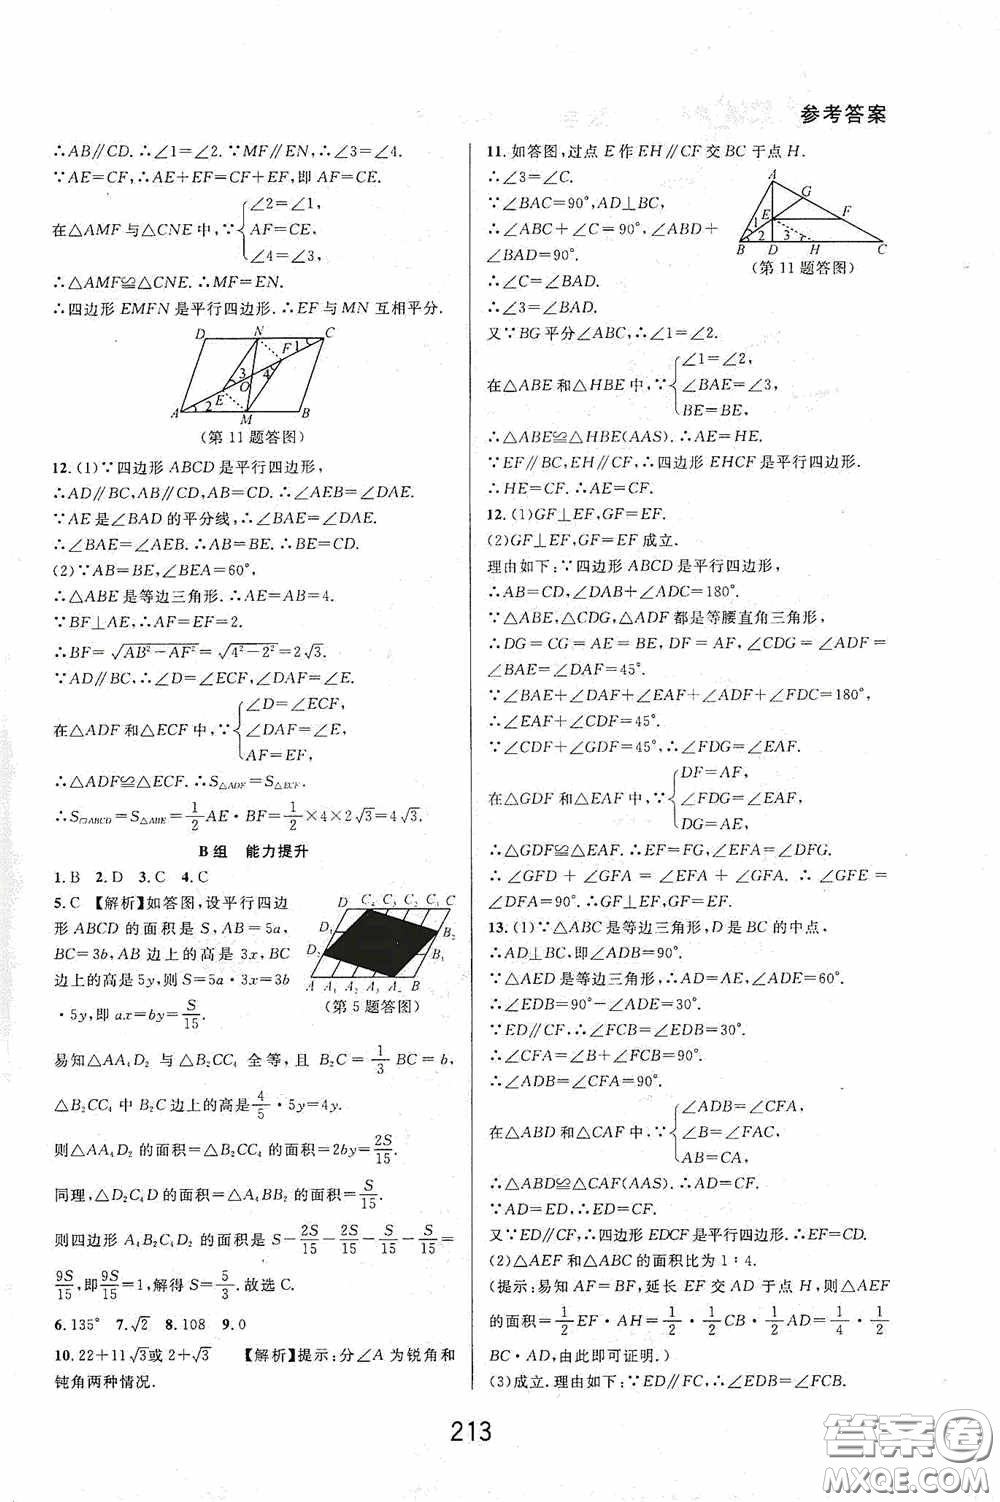 参考答案
∴AB∥CD.∴∠1=∠2.∵MF∥EN,∴∠3=∠4.
∵AE=CF,∴AE+EF=CF+EF,即AF=CE.
在△AMF与△CNE中,∵
∠2=∠1,
AF=CE,
∠4=∠3,
∴△AMF≌△CNE.∴MF=EN.
∴四边形EMFN是平行四边形.∴EF与MN互相平分.
D N C
F 1
3 4
O
E
A 2 M B
(第11题答图)
12.(1)∵四边形ABCD是平行四边形,
∴AD∥BC,AB∥CD,AB=CD.∴∠AEB=∠DAE.
∵AE是∠BAD的平分线,∴∠BAE=∠DAE.
∴∠BAE=∠AEB.∴AB=BE.∴BE=CD.
(2)∵AB=BE,∠BEA=60°,
∴△ABE是等边三角形.∴AE=AB=4.
∵BF⊥AE,∴AF=EF=2.
∴BF=√(AB²-AF²)=√(4²-2²)=2√3.
∵AD∥BC,∴∠D=∠ECF,∠DAF=∠E.
在△ADF和△ECF中,∵
∠D=∠ECF,
∠DAF=∠E,
AF=EF,
∴△ADF≌△ECF.∴S△ADF=S△ECF.
∴S▱ABCD=S△ABE=1/2AE·BF=1/2×4×2√3=4√3.
B组 能力提升
1.B 2.D 3.C 4.C
5.C 【解析】如答图,设平行四边
形ABCD的面积是S,AB=5a,
BC=3b,AB边上的高是3x,BC
边上的高是5y,则S=5a·3x=3b
·5y,即ax=by=S/15.
D C₄ C₃ C₂ C₁ C
D₁ B₂
D₂ B₁
A A₁ A₂ A₃ A₄ B
(第5题答图)
易知△AA₄D₂与△B₂CC₄全等,且B₂C=1/3BC=b,
△B₂CC₄中B₂C边上的高是4/5·5y=4y.
则△AA₄D₂的面积=△B₂CC₄的面积=2by=2S/15.
同理,△D₂C₄D的面积=△A₄BB₂的面积=S/15.
则四边形A₄B₂C₄D₂的面积是S-2S/15-2S/15-S/15-S/15=
9S/15,即9S/15=1,解得S=5/3.故选C.
6.135° 7.√2 8.108 9.0
10.22+11√3或2+√3 【解析】提示:分∠A为锐角和
钝角两种情况.
11.如答图,过点E作EH∥CF交BC于点H.
∴∠3=∠C.
∵∠BAC=90°,AD⊥BC,
∴∠ABC+∠C=90°,∠ABD+
∠BAD=90°.
∴∠C=∠BAD.
∴∠3=∠BAD.
A
G
E F
1
2 3
B D H C
(第11题答图)
又∵BG平分∠ABC,∴∠1=∠2.
在△ABE和△HBE中,∵
∠1=∠2,
∠BAE=∠3,
BE=BE,
∴△ABE≌△HBE(AAS).∴AE=HE.
∵EF∥BC,EH∥CF,∴四边形EHCF是平行四边形.
∴HE=CF.∴AE=CF.
12.(1)GF⊥EF,GF=EF.
(2)GF⊥EF,GF=EF成立.
理由如下:∵四边形ABCD是平行四边形,
∴AB=CD,∠DAB+∠ADC=180°.
∵△ABE,△CDG,△ADF都是等腰直角三角形,
∴DG=CG=AE=BE,DF=AF,∠CDG=∠ADF=
∠BAE=∠DAF=45°.
∵∠BAE+∠DAF+∠EAF+∠ADF+∠FDC=180°,
∴∠EAF+∠CDF=45°.
∵∠CDF+∠GDF=45°,∴∠FDG=∠EAF.
在△GDF和△EAF中,∵
DF=AF,
∠FDG=∠EAF,
DG=AE,
∴△GDF≌△EAF.∴EF=FG,∠EFA=∠DFG.
∴∠GFD+∠GFA=∠EFA+∠GFA.∴∠GFE=
∠DFA=90°.∴GF⊥EF,GF=EF.
13.(1)∵△ABC是等边三角形,D是BC的中点,
∴AD⊥BC,即∠ADB=90°.
∵△AED是等边三角形,∴AD=AE,∠ADE=60°.
∴∠EDB=90°-∠ADE=30°.
∵ED∥CF,∴∠FCB=∠EDB=30°.
∴∠CFA=∠B+∠FCB=90°.
∴∠ADB=∠CFA=90°.
在△ABD和△CAF中,∵
∠ADB=∠CFA,
∠B=∠FAC,
BA=CA,
∴△ABD≌△CAF(AAS).∴AD=CF.
∵AD=ED,∴ED=CF.
又∵ED∥CF,∴四边形EDCF是平行四边形.
(2)△AEF和△ABC的面积比为1∶4.
(提示:易知AF=BF,延长EF交AD于点H,则△AEF
的面积=1/2EF·AH=1/2CF·1/2AD=1/4·1/2
BC·AD,由此即可证明.)
(3)成立.理由如下:∵ED∥FC,∴∠EDB=∠FCB.
213
答案圈
MXQE.COM